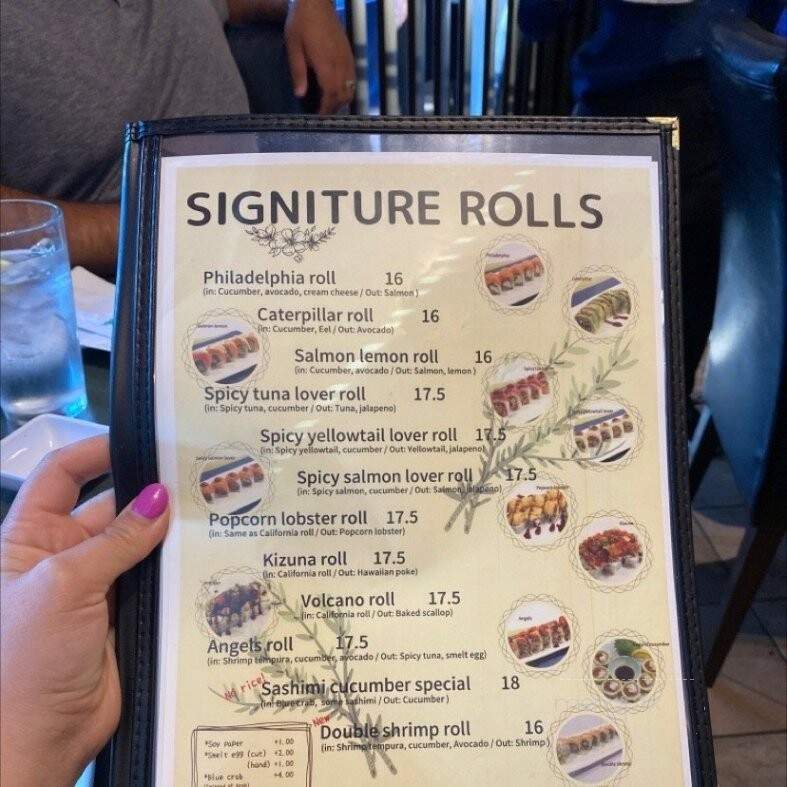 SIGNITURE ROLLS
Philadelphia roll 16
(in: Cucumber, avocado, cream cheese / Out: Salmon )
Caterpillar roll 16
(in: Cucumber, Eel / Out: Avocado)
Salmon lemon roll 16
(in: Cucumber, avocado / Out: Salmon, lemon )
Spicy tuna lover roll 17.5
(in: Spicy tuna, cucumber / Out: Tuna, jalapeno)
Spicy yellowtail lover roll 17.5
(in: Spicy yellowtail, cucumber / Out: Yellowtail, jalapeno)
Spicy salmon lover roll 17.5
(in: Spicy salmon, cucumber / Out: Salmon, jalapeno)
Popcorn lobster roll 17.5
(in: Same as California roll / Out: Popcorn lobster)
Kizuna roll 17.5
(in: California roll / Out: Hawaiian poke)
Volcano roll 17.5
(in: California roll / Out: Baked scallop)
Angels roll 17.5
(in: Shrimp tempura, cucumber, avocado / Out: Spicy tuna, smelt egg)
No rice!
Sashimi cucumber special 18
(in: Blue crab, some sashimi / Out: Cucumber )
New
Double shrimp roll 16
(in: Shrimp tempura, cucumber, Avocado / Out: Shrimp)
*Soy paper +1.00
*Smelt egg (cut) +2.00
(hand) +1.00
*Blue crab +4.00